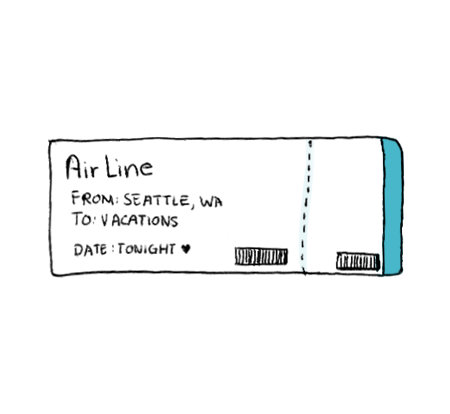 Air Line
FROM: SEATTLE, WA
TO: VACATIONS
DATE: TONIGHT ♥